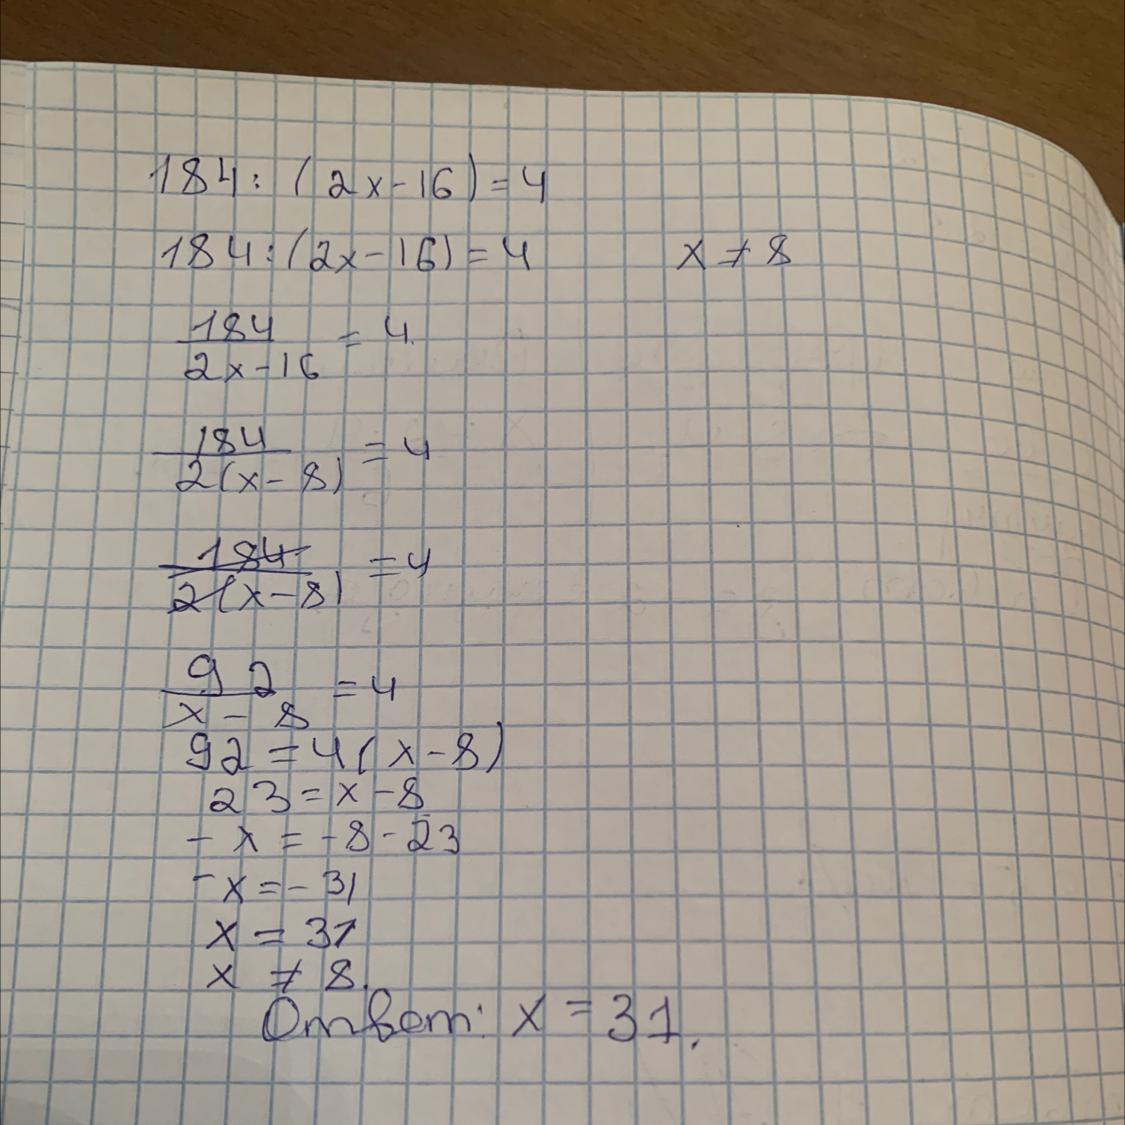 184: (2x-16)=4
184:(2x-16)=4 x ≠ 8
184
2x-16 = 4
184
2(x-8) = 4
184
2(x-8) = 4
92
x-8 = 4
92=4(x-8)
23=x-8
-x=-8-23
-x=-31
x=31
x ≠ 8.
Ответ: x=31.